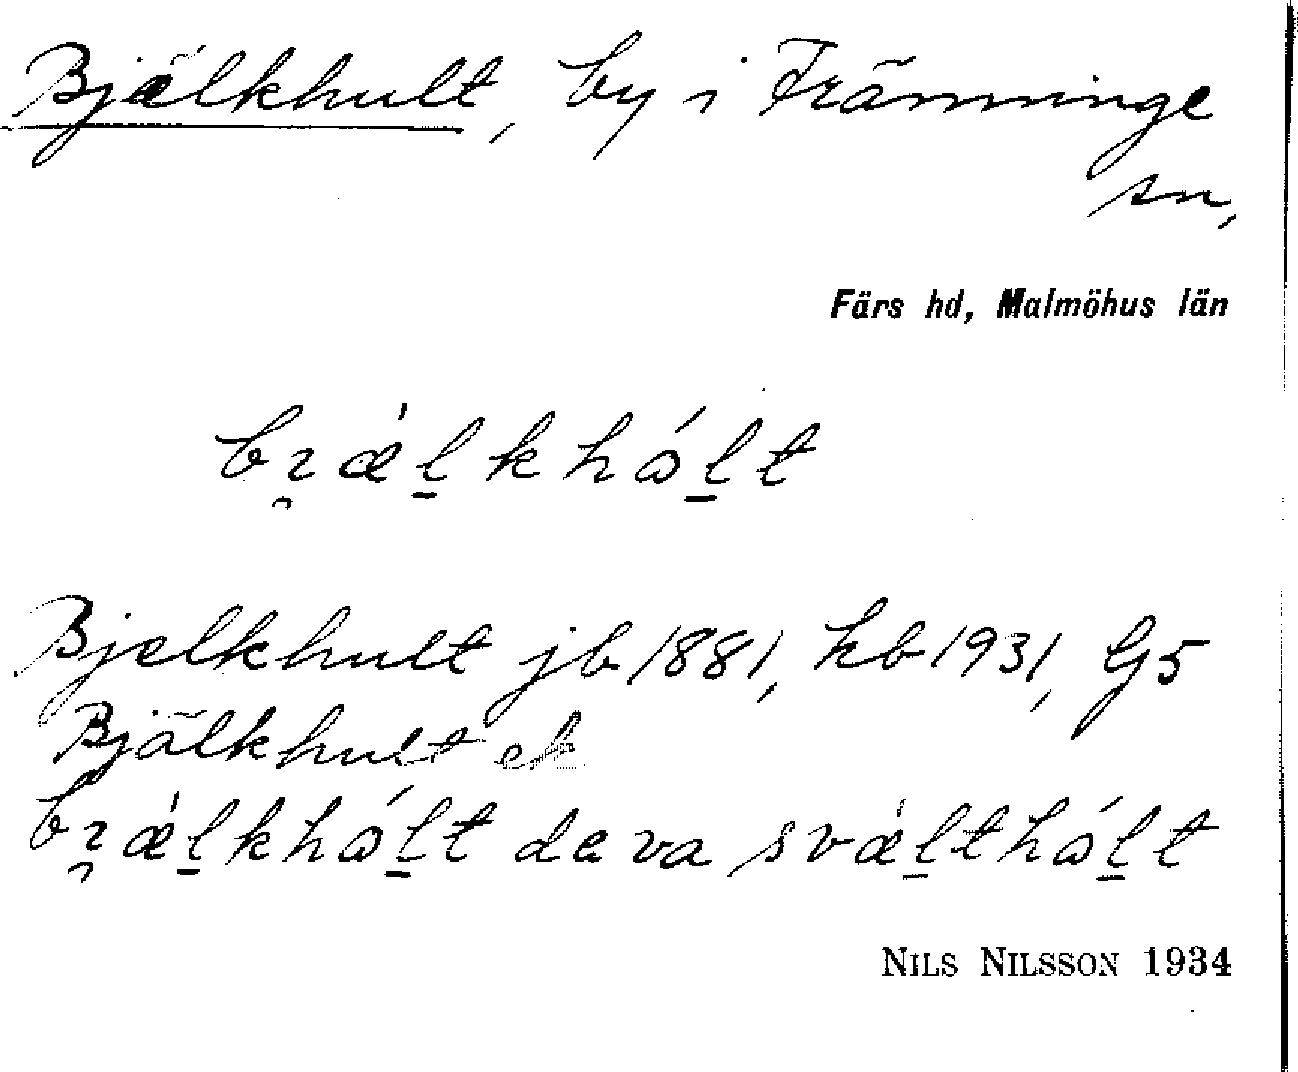 Bjälkhult, by i Tränninge
sn,
Färs hd, Malmöhus län
bɿ̯ǽl̲khál̲t
Bjelkhult jb 1881, hb 1931, G5
Bjälkhult ek
bɿ̯ǽl̲khál̲t de va svǽl̲thál̲t
NILS NILSSON 1934